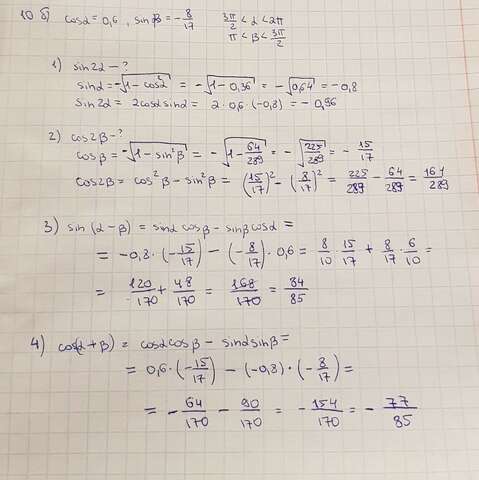 10 б) cosα = 0,6 , sinβ = -8/17   3π/2 < α < 2π
π < β < 3π/2
1) sin2α - ?
sinα = -√(1 - cos²α) = -√(1 - 0,36) = -√0,64 = -0,8
sin2α = 2cosα sinα = 2 · 0,6 · (-0,8) = -0,96
2) cos2β - ?
cosβ = -√(1 - sin²β) = -√(1 - 64/289) = -√(225/289) = -15/17
cos2β = cos²β - sin²β = (15/17)² - (8/17)² = 225/289 - 64/289 = 161/289
3) sin(α - β) = sinα cosβ - sinβ cosα =
= -0,8 · (-15/17) - (-8/17) · 0,6 = 8/10 · 15/17 + 8/17 · 6/10 =
= 120/170 + 48/170 = 168/170 = 84/85
4) cos(α + β) = cosα cosβ - sinα sinβ =
= 0,6 · (-15/17) - (-0,8) · (-8/17) =
= -64/170 - 90/170 = -154/170 = -77/85